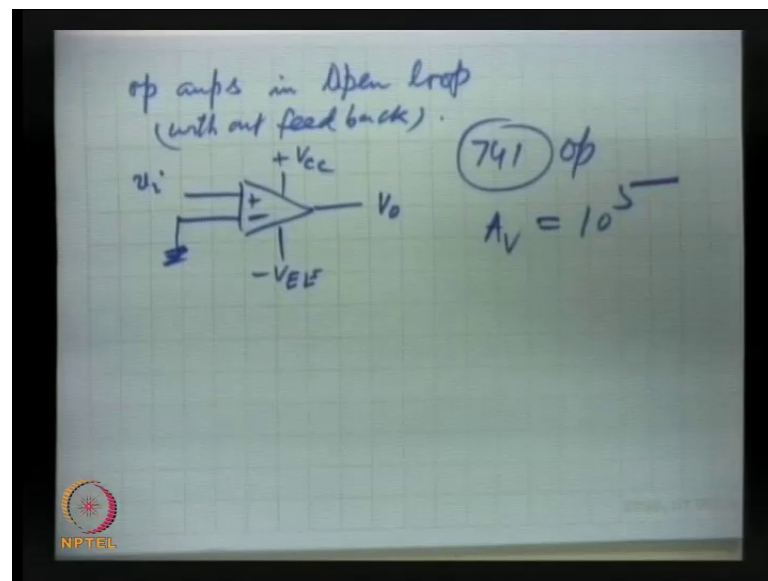 op amps in Open loop
(without feed back).
+ Vcc
vi
+
-
Vo
- VEE
741 op
Av = 10^5
NPTEL